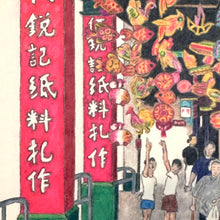 銳記紙料扎作
銳記紙料扎作